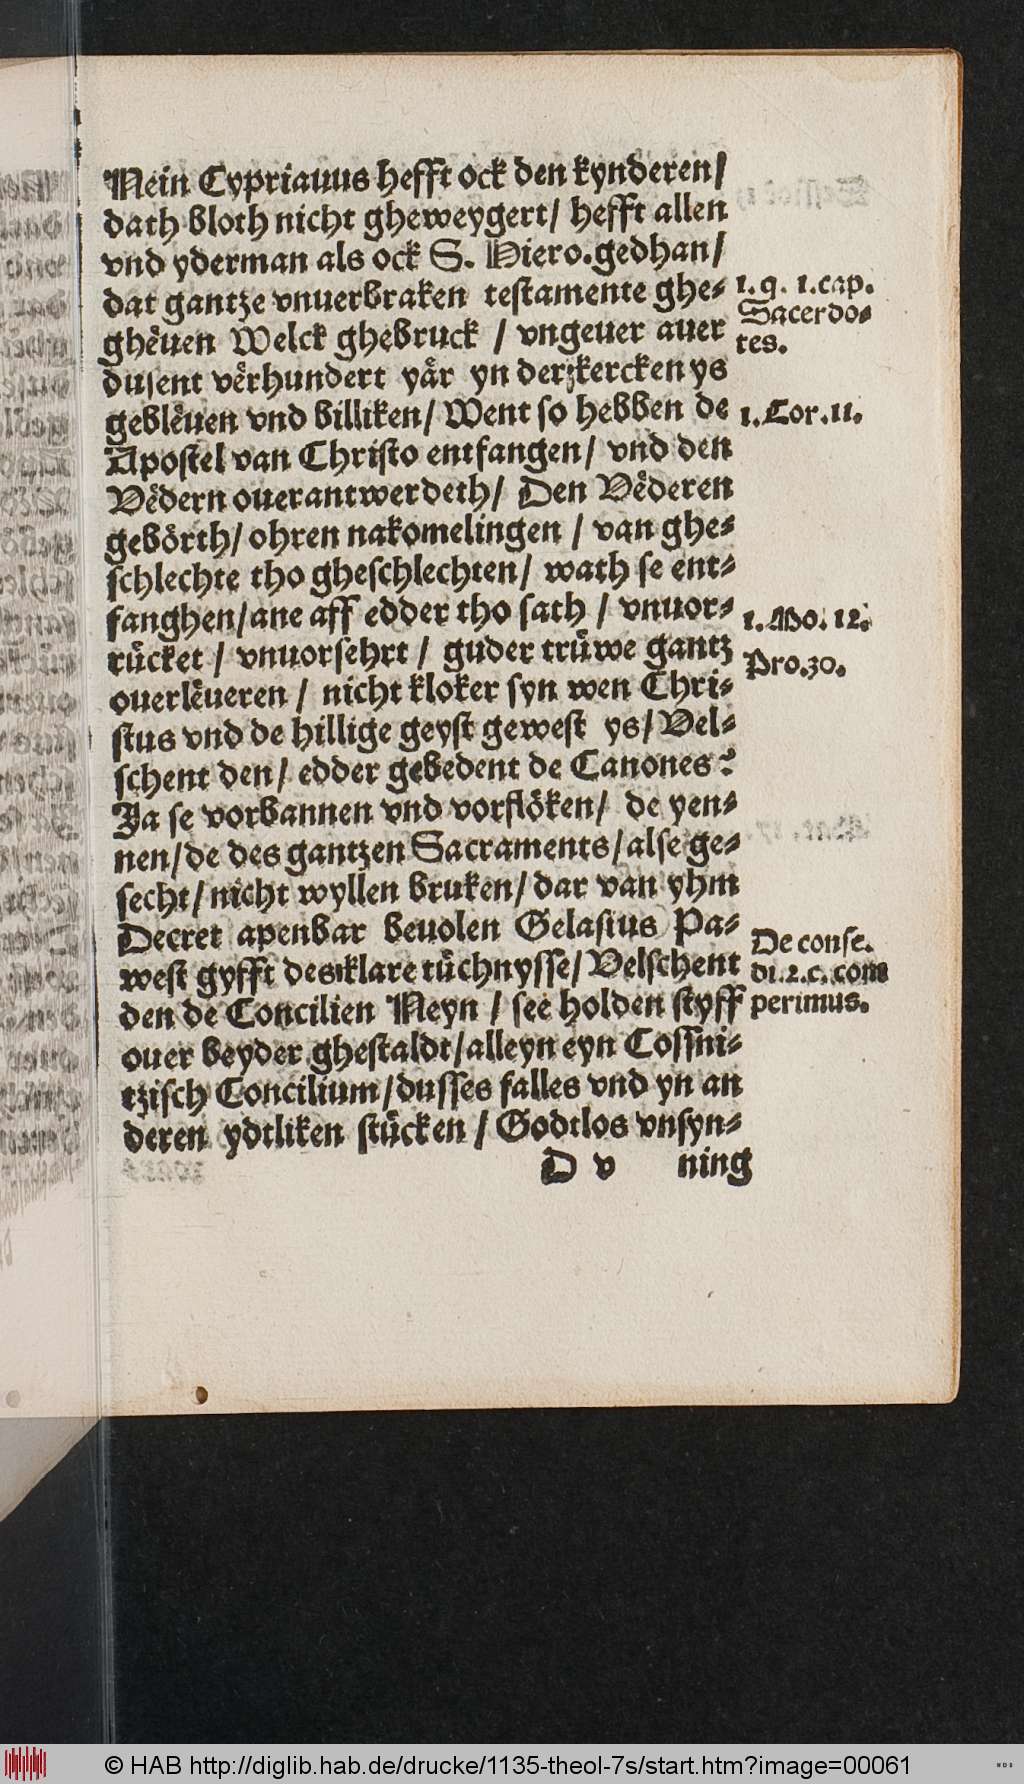 Nein Cyprianus hefft ock den kynderen/
dath bloth nicht gheweygert/ hefft allen
vnd yderman als ock S. Hiero. gedhan/
dat gantze vnuerbraken testamente ghe-
ghëuen Welck ghebruck / vngeuer auer
dusent vërhundert yår yn der kercken ys
geblëuen vnd billiken/ Went so hebben de
Apostel van Christo entfangen/ vnd den
Vëdern ouerantwerdeth/ Den Vëderen
gebörth/ ohren nakomelingen / van ghe-
schlechte tho gheschlechten/ wath se ent-
fanghen/ ane aff edder tho sath / vnuor-
rücket / vnuorsehrt / guder trüwe gantz
ouerlëueren / nicht kloker syn wen Chri-
stus vnd de hillige geyst gewest ys/ Vel-
schent den/ edder gebedent de Canones?
Ja se vorbannen vnd vorflöken/ de yen-
nen/ de des gantzen Sacraments/ alse ge-
secht/ nicht wyllen bruken/ dar van yhm
Decret apenbar beuolen Gelasius Pa-
west gyfft des klare tüchnysse/ Velschent
den de Concilien Neyn / see holden styff
ouer beyder ghestaldt/ alleyn eyn Cossni-
tzisch Concilium/ dusses falles vnd yn an
deren ydtliken stücken / Godtlos vnsyn-
D v ning
1. q. 1. cap.
Sacerdo-
tes.
1. Cor. 11.
1. Mo. 12.
Pro. 30.
De conse.
di. 2. c. com
perimus.
© HAB http://diglib.hab.de/drucke/1135-theol-7s/start.htm?image=00061